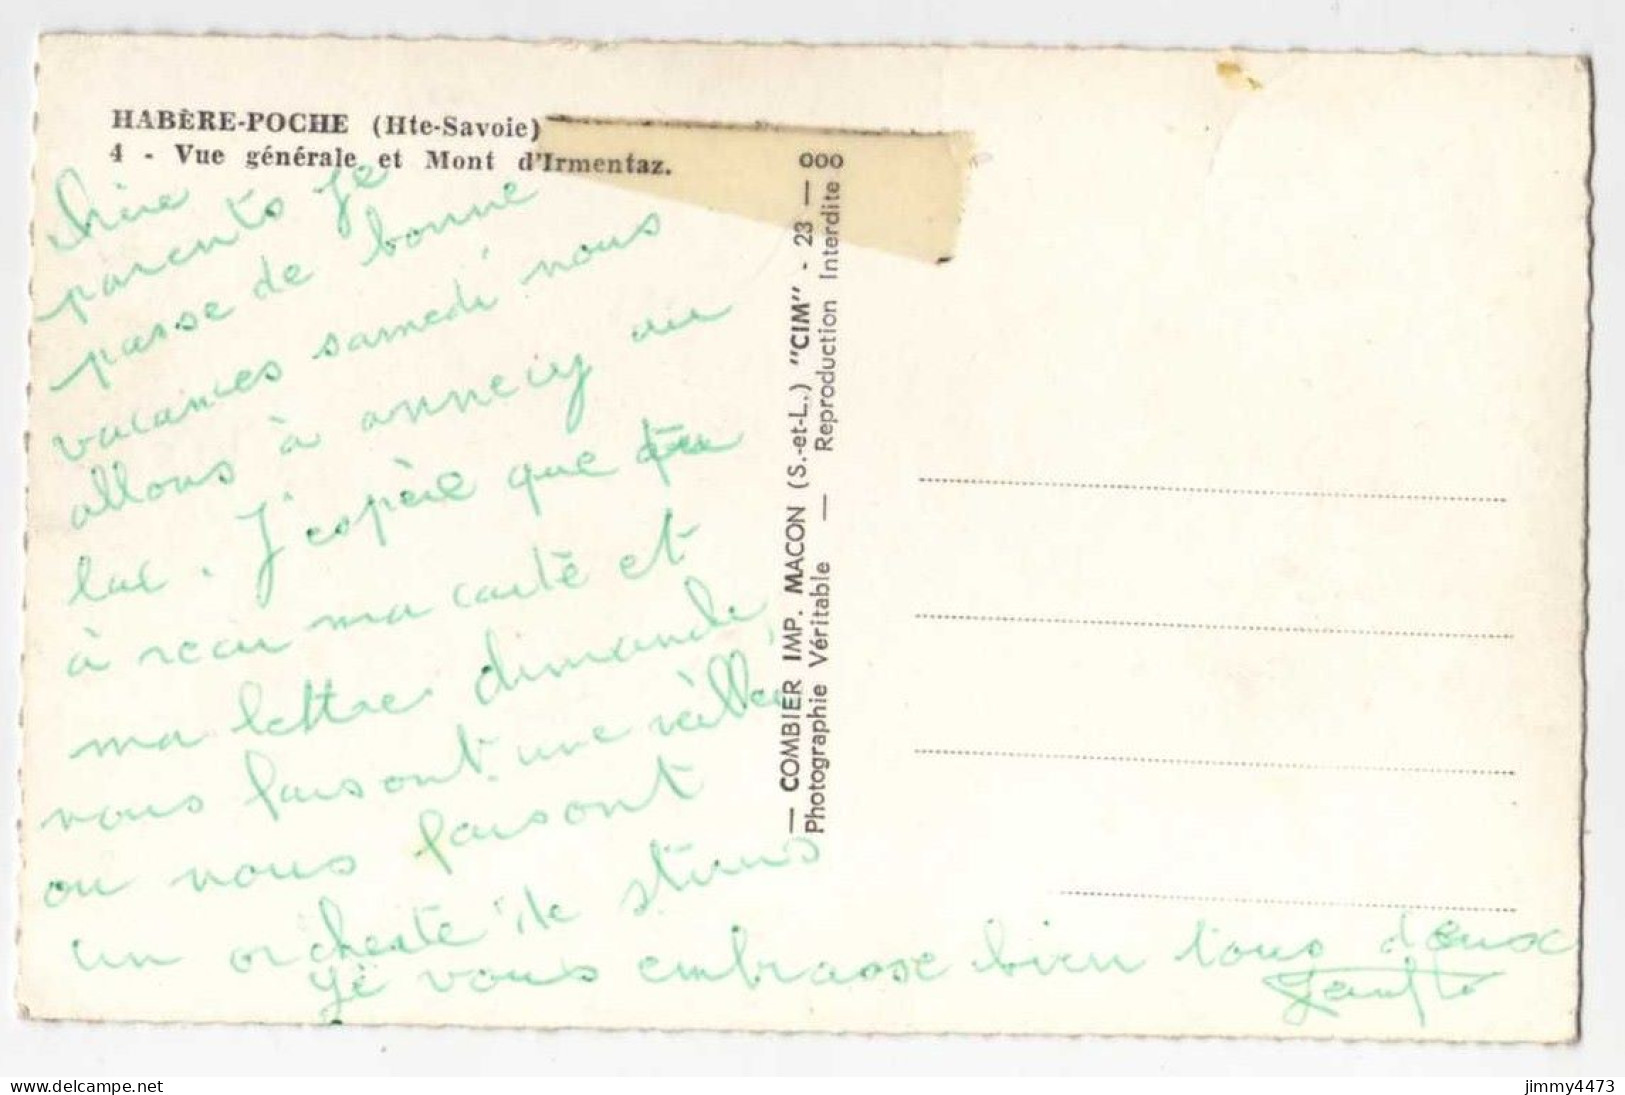 HABÈRE-POCHE (Hte-Savoie)
4 - Vue générale et Mont d'Irmentaz.
chère
parents je
passe de bonne
vacances samedi nous
allons à annecy au
lac. J'espère que tu
à recu ma carte et
ma lettre dimande
nous faisont une veillé
ou nous faisont
un orcheste de
je vous embrasse bien tous deux
— COMBIER IMP. MACON (S.-et-L.) "CIM" - 23 — 000
Photographie Véritable — Reproduction Interdite
www.delcampe.net
jimmy4473